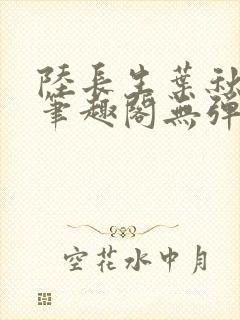 陸長生葉秋
筆趣閣無彈
空花水中月